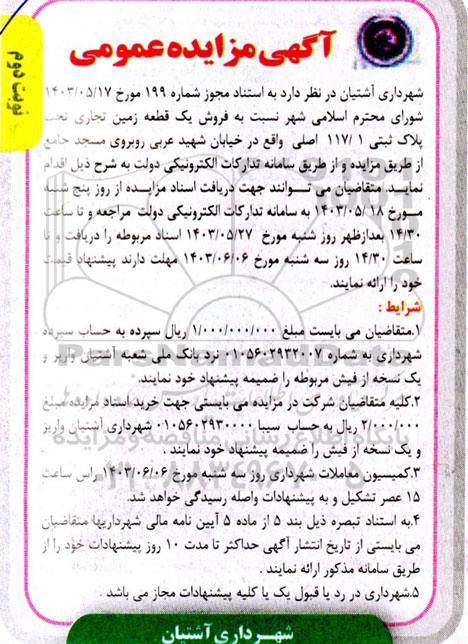 آگهی مزایده عمومی
نوبت دوم
شهرداری آشتیان در نظر دارد به استناد مجوز شماره ۱۹۹ مورخ ۱۴۰۳/۰۵/۱۷
شورای محترم اسلامی شهر نسبت به فروش یک قطعه زمین تجاری تحت
پلاک ثبتی ۱ /۱۱۷ اصلی واقع در خیابان شهید عربی روبروی مسجد جامع
از طریق مزایده و از طریق سامانه تدارکات الکترونیکی دولت به شرح ذیل اقدام
نمایـد متقاضیان می تـوانند جهت دریافت اسناد مزایـده از روز پنج شنبه
مـورخ ۱۴۰۳/۰۵/۱۸ به سامانه تدارکات الکترونیکی دولت مراجعه و تا ساعت
۱۴/۳۰ بعدازظهر روز شنبه مورخ ۱۴۰۳/۰۵/۲۷ اسناد مربوطه را دریافت و تا
ساعت ۱۴/۳۰ روز سه شنبه مورخ ۱۴۰۳/۰۶/۰۶ مهلت دارند پیشنهاد قیمت
خود را ارائه نمایند.
شرایط :
۱.متقاضیان می بایست مبلغ ۱/۰۰۰/۰۰۰/۰۰۰ ریال سپرده به حساب سپرده
شهرداری به شماره ۰۱۰۵۶۰۲۹۳۲۰۰۷ نزد بانک ملی شعبه آشتیان واریز و
یک نسخه از فیش مربوطه را ضمیمه پیشنهاد خود نمایند.
۲.کلیه متقاضیان شرکت در مزایده می بایستی جهت خرید اسناد مزایده مبلغ
۲/۰۰۰/۰۰۰ ریال به حساب سیبا ۰۱۰۵۶۰۲۹۳۰۰۰۰ شهرداری آشتیان واریز
و یک نسخه از فیش را ضمیمه پیشنهاد خود نمایند .
۳.کمیسیون معاملات شهرداری روز سه شنبه مورخ ۱۴۰۳/۰۶/۰۶ راس ساعت
۱۵ عصر تشکیل و به پیشنهادات واصله رسیدگی خواهد شد.
۴.به استناد تبصره ذیل بند ۵ از ماده ۵ آیین نامه مالی شهرداریها متقاضیان
می بایستی از تاریخ انتشار آگهی حداکثر تا مدت ۱۰ روز پیشنهادات خود را از
طریق سامانه مذکور ارائه نمایند .
۵.شهرداری در رد یا قبول یک یا کلیه پیشنهادات مجاز می باشد .
شهـرداری آشتیان